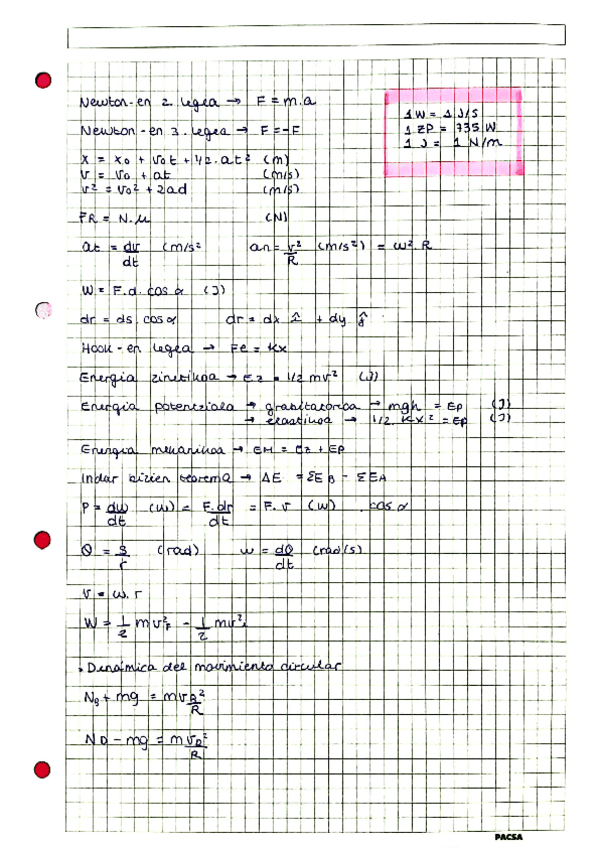 Newton-en 2. legea → F = m.a
1 W = 1 J/s
1 ZP = 735 W
1 J = 1 N/m
Newton-en 3. legea → F = -F
x = x₀ + v₀t + 1/2.at² (m)
v = v₀ + at (m/s)
v² = v₀² + 2ad (m/s)
FR = N.μ (N)
at = dv/dt (m/s² an = v²/R (m/s²) = ω².R
W = F.d.cos α (J)
dr = ds.cos α dr = dx î + dy ĵ
Hook-en legea → Fe = Kx
Energia zinetikoa → Ez = 1/2 mv² (J)
Energia potentziala → grabitatorioa → mgh = Ep (J)
→ elastikoa → 1/2.Kx² = Ep (J)
Energia mekanikoa → EM = Ez + EP
Indar bizien teorema → ΔE = ΣEB - ΣEA
P = dw/dt (W) = F.dr/dt = F.v (W) cos α
θ = s/r (rad) ω = dθ/dt (rad/s)
v = ω.r
W = 1/2 mv²F - 1/2 mv²i
• Dinámica del movimiento circular
NB + mg = m vB²/R
ND - mg = m vD²/R
PACSA